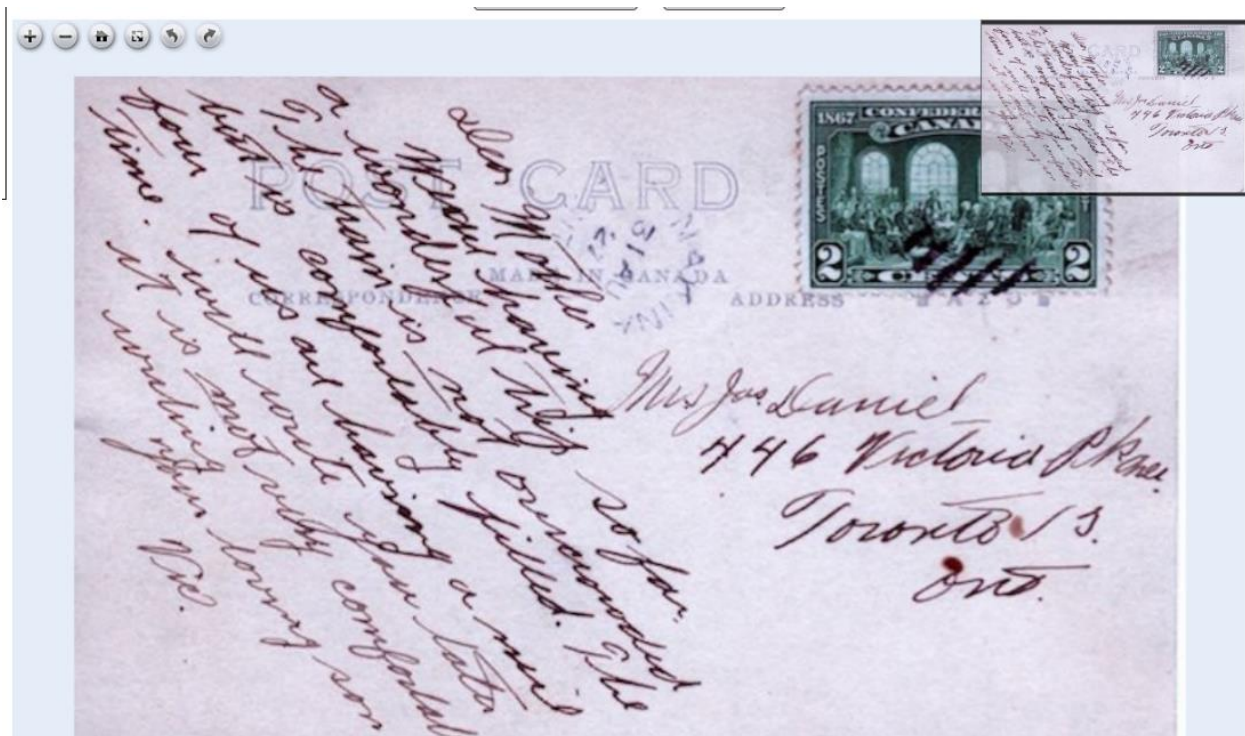 POST CARD
MADE IN CANADA
CORRESPONDENCE
ADDRESS
1867 CONFEDER
CANA
POSTES
2 CENTS 2
Dear Mother
Am having
a wonderful trip so far.
The train is not overcrowded
but is comfortably filled. The
four of us are having a nice
time. I will write you later
it is not very comfortable
writing
your loving son
Vic.
Mrs Jas Daniel
446 Victoria Pk Ave.
Toronto 13.
Ont.
POST CARD
Mrs Jas Daniel
446 Victoria Pk Ave
Toronto 13.
Ont